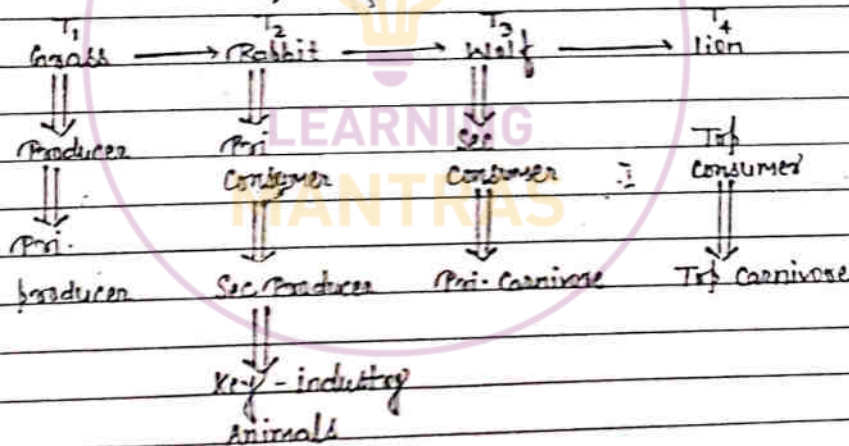 T1 T2 T3 T4
Grass → Rabbit → Wolf → lion
LEARNING
Producer Pri Sec Top
Consumer Consumer Consumer
MANTRAS
Pri.
producer Sec. Producer Pri. Carnivore Top Carnivore
Key-industry
animals